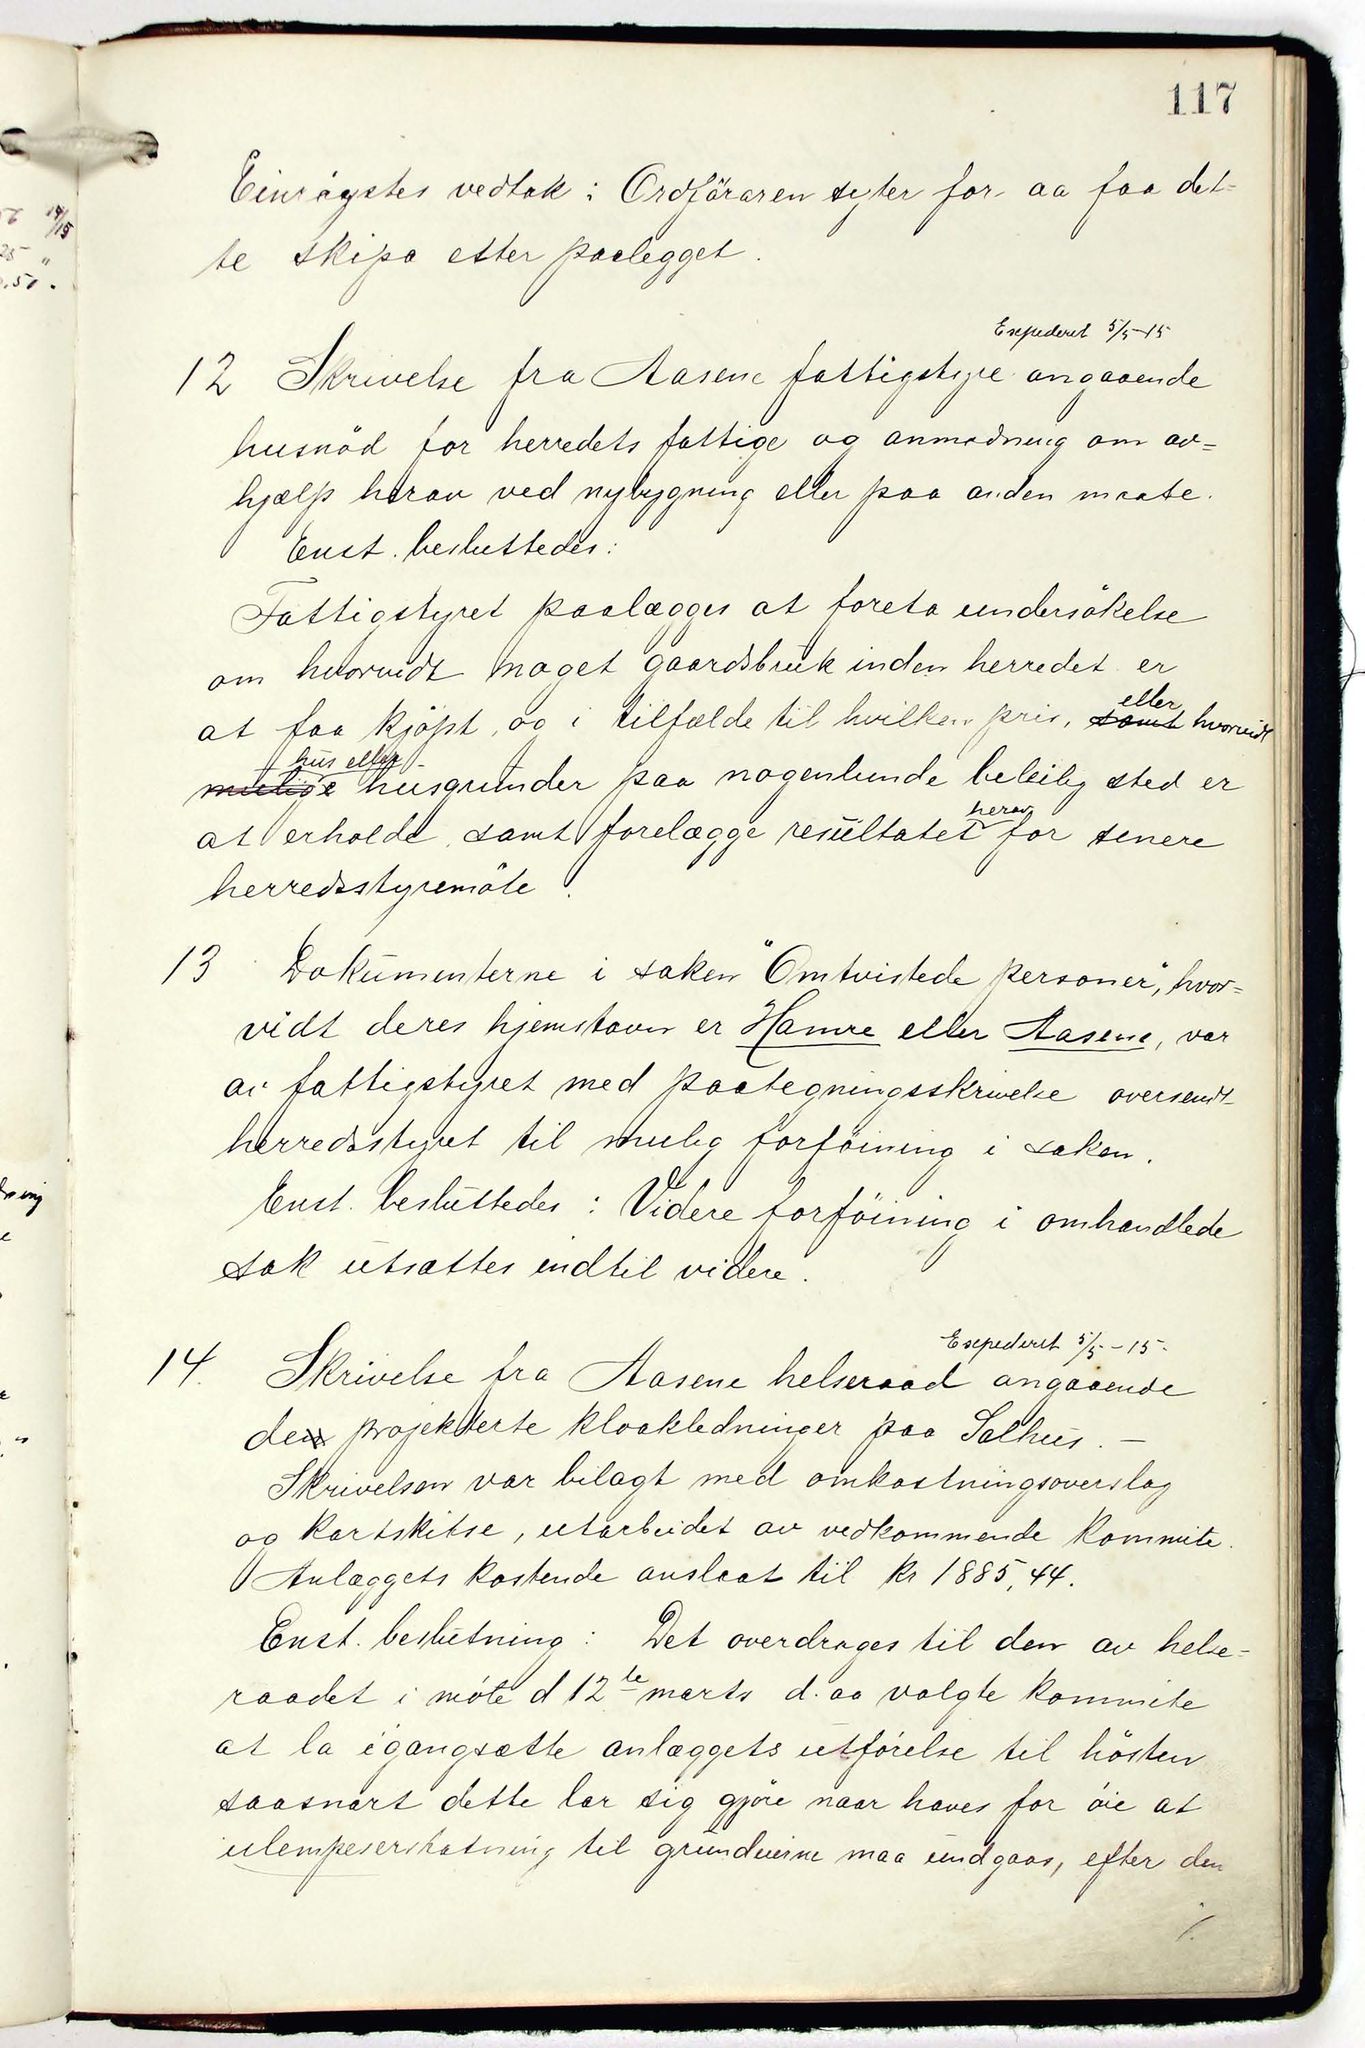 117
Einrøystes vedtak: Ordføraren syter for aa faa det-
te skipa etter paalegget.
Expederet 5/5-15
12 Skrivelse fra Aasene fattigstyre angaaende
husnöd for herredets fattige og anmodning om av=
hjælp herav ved nybygning eller paa anden maate.
Enst. besluttedes:
Fattigstyret paalægges at foreta undersökelse
om hvorvidt noget gaardsbruk inden herredet er
at faa kjöpt, og i tilfælde til hvilken pris, samt hvorvidt
eller
hus eller
mulige husgrunder paa nogenlunde beleilig sted er
herav
at erholde samt forelægge resultatet for senere
herredsstyremöte.
13 Dokumenterne i saken "Omtvistede personer", hvor=
vidt deres hjemstavn er Hamre eller Aasene, var
av fattigstyret med paategningsskrivelse oversendt
herredsstyret til mulig forföining i saken.
Enst. besluttedes: Videre forföining i omhandlede
sak utsættes indtil videre.
Expederet 5/5-15.
14. Skrivelse fra Aasene helseraad angaaende
den projekterte kloakledninger paa Salhus. —
Skrivelsen var bilagt med omkostningsoverslag
og kartskitse, utarbeidet av vedkommende kommite.
Anlæggets kostende anslaat til kr 1885,44.
Enst. beslutning: Det overdrages til den av helse=
raadet i möte d 12te marts d. aa valgte kommite
at la igangsætte anlæggets utförelse til hösten
saasnart dette lar sig gjöre naar haves for öie at
ulempeserstatning til grundeierne maa undgaas, efter den
./.